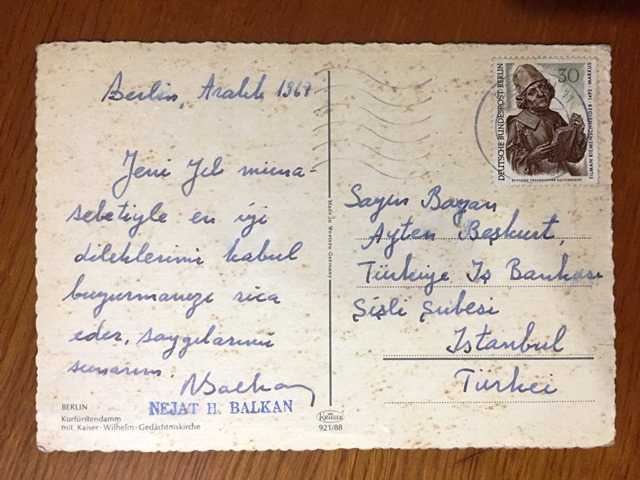 Berlin, Aralık 1967
Yeni Yıl müna-
sebetiyle en iyi
dileklerimi kabul
buyurmanızı rica
eder, saygılarımı
sunarım.
NBalkan
NEJAT H. BALKAN
BERLIN
Kurfürstendamm
mit Kaiser-Wilhelm-Gedächtniskirche
Made in Western Germany
KRÜGER
921/88
30
DEUTSCHE BUNDESPOST BERLIN
TILMAN RIEMENSCHNEIDER · 1492 · MARKUS
Sayın Bayan
Ayten Beşkurt,
Türkiye İş Bankası
Şişli Şubesi
Istanbul
Türkei